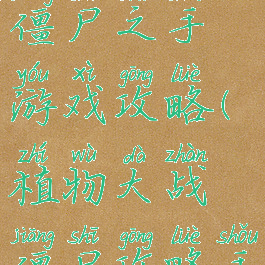 僵尸之手
yóu xì gōng lüè
游戏攻略(
zhí wù dà zhàn
植物大战
jiāng shī gōng lüè shǒu
僵尸攻略手